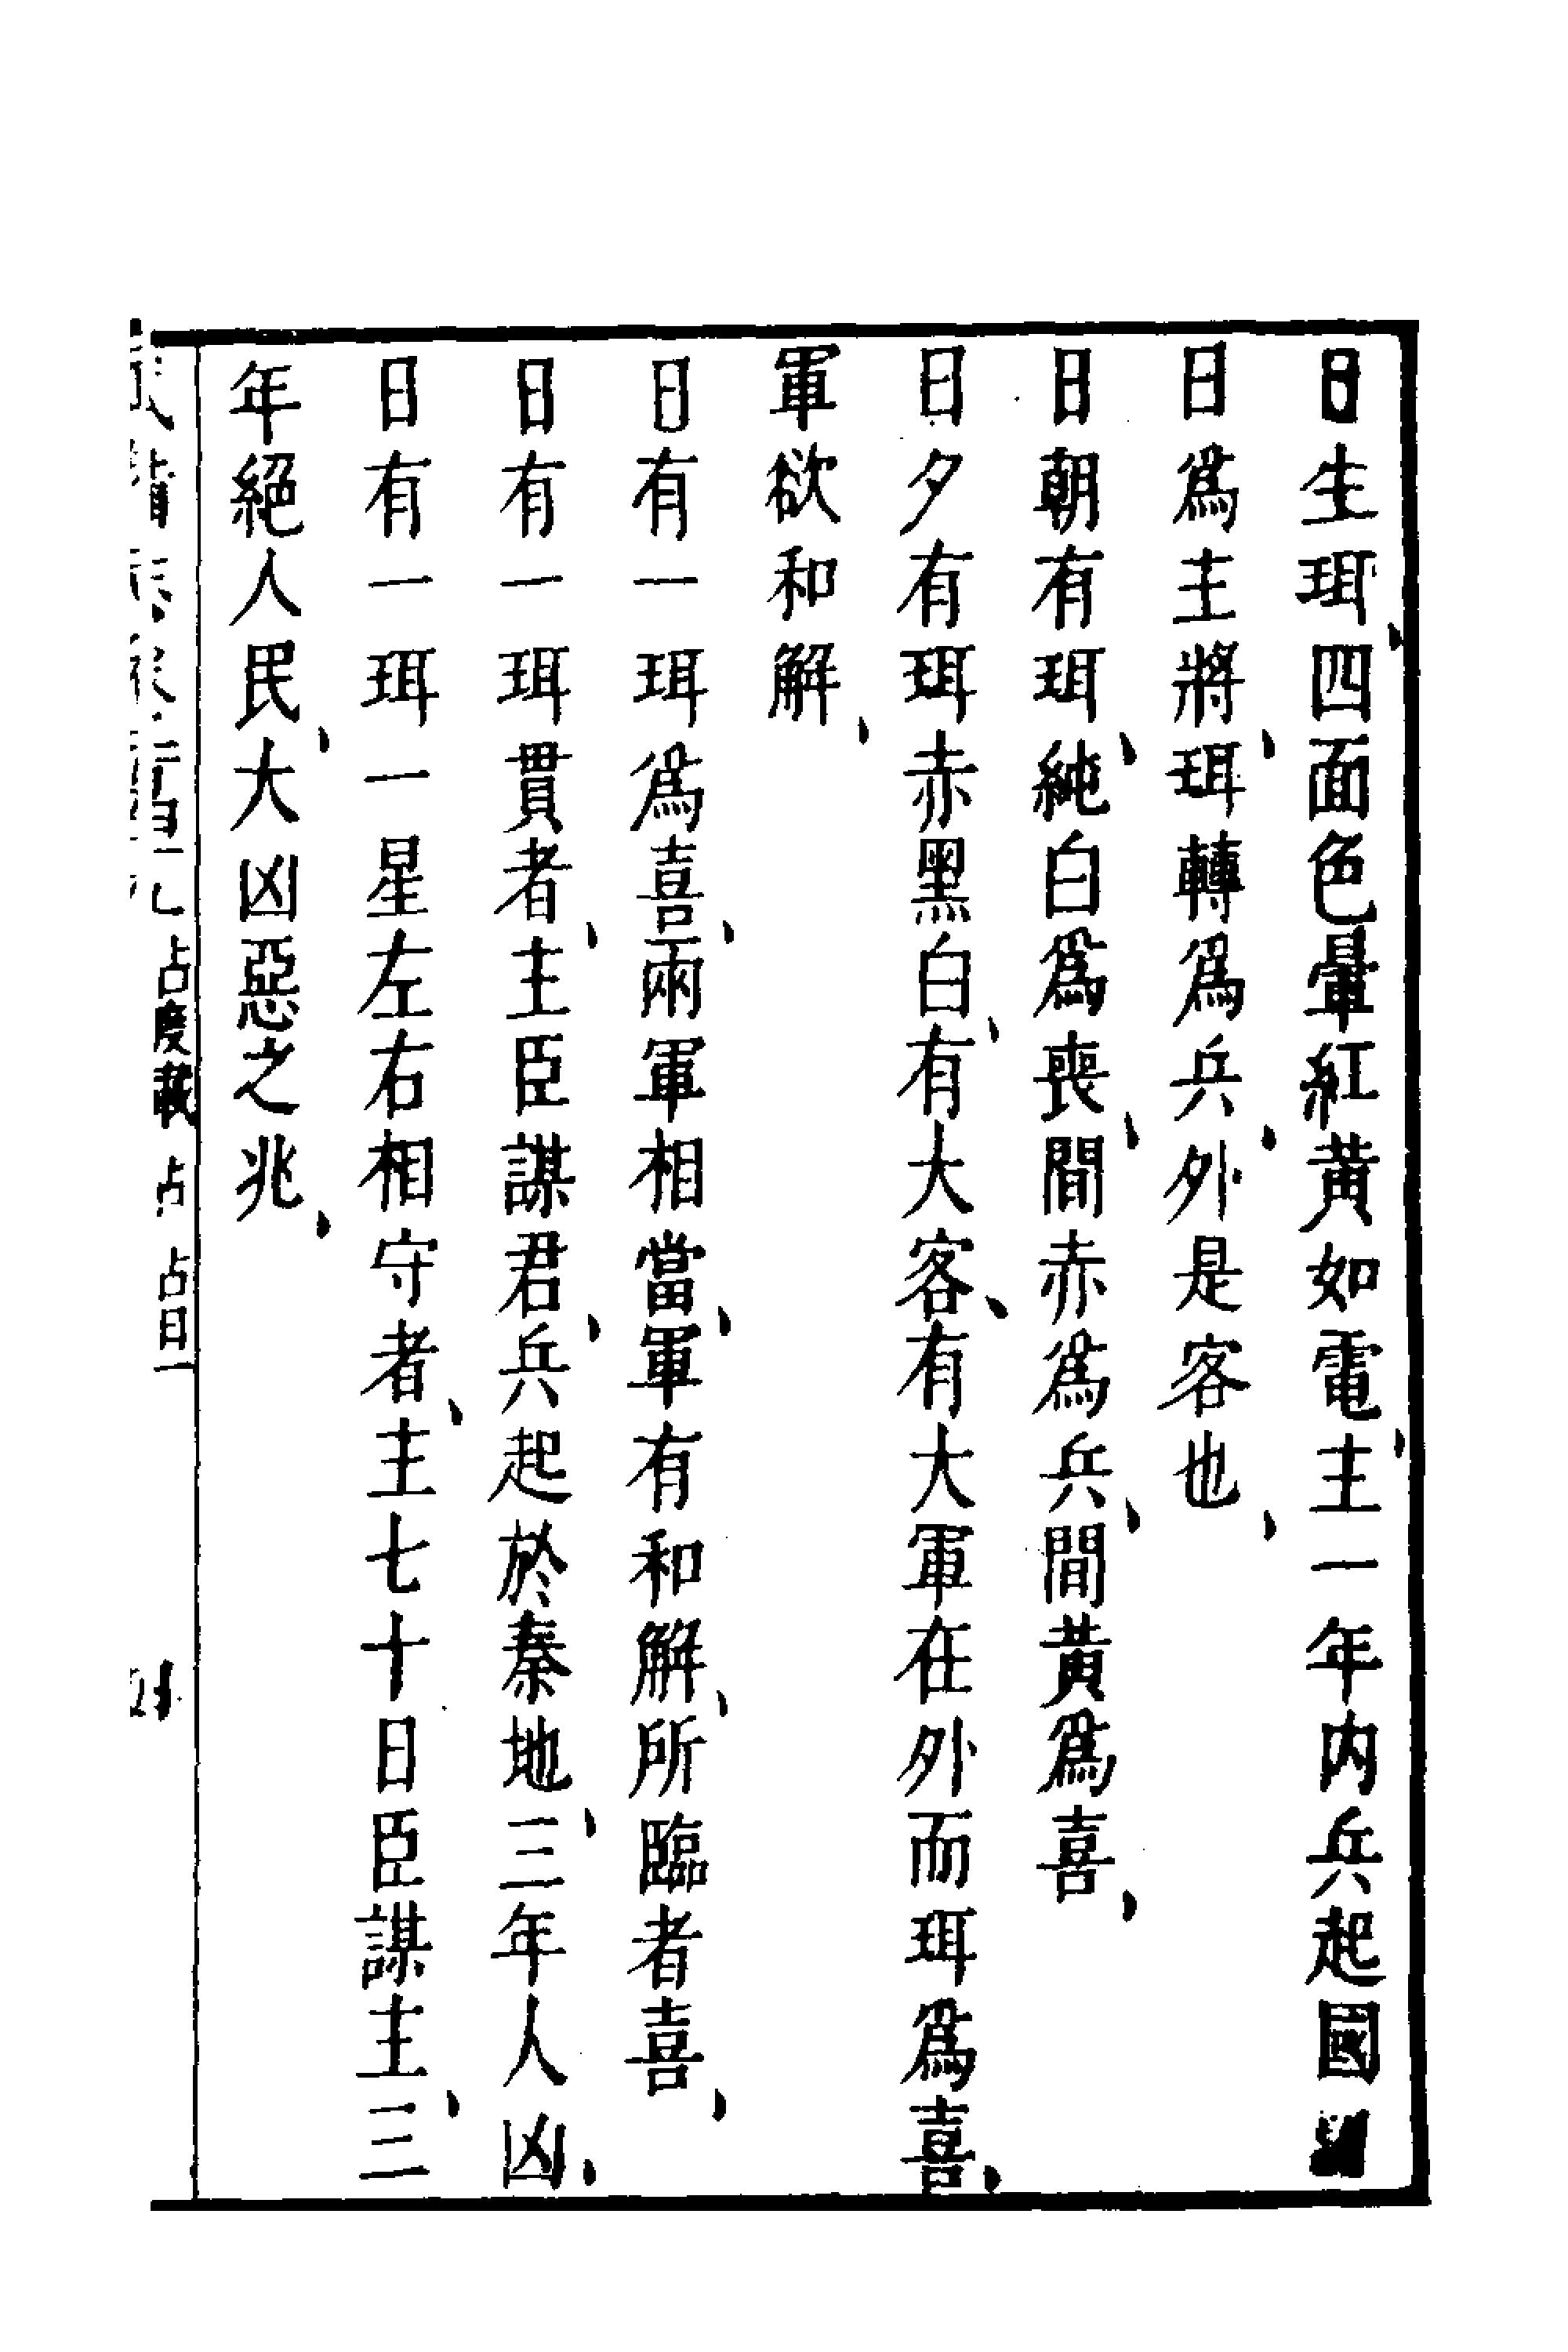 日生珥、四面色暈紅黃如電、主一年内兵起國
日爲主將、珥轉爲兵、外是客也、
日朝有珥、純白爲喪、間赤爲兵、間黃爲喜、
日夕有珥赤黑白、有大客、有大軍在外而珥爲喜、
軍欲和解、
日有一珥爲喜、兩軍相當、軍有和解、所臨者喜、
日有一珥貫者、主臣謀君、兵起於秦地、三年人凶、
日有一珥一星左右相守者、主七十日臣謀主、三
年絕人民、大凶惡之兆、
占度載 占 占日一